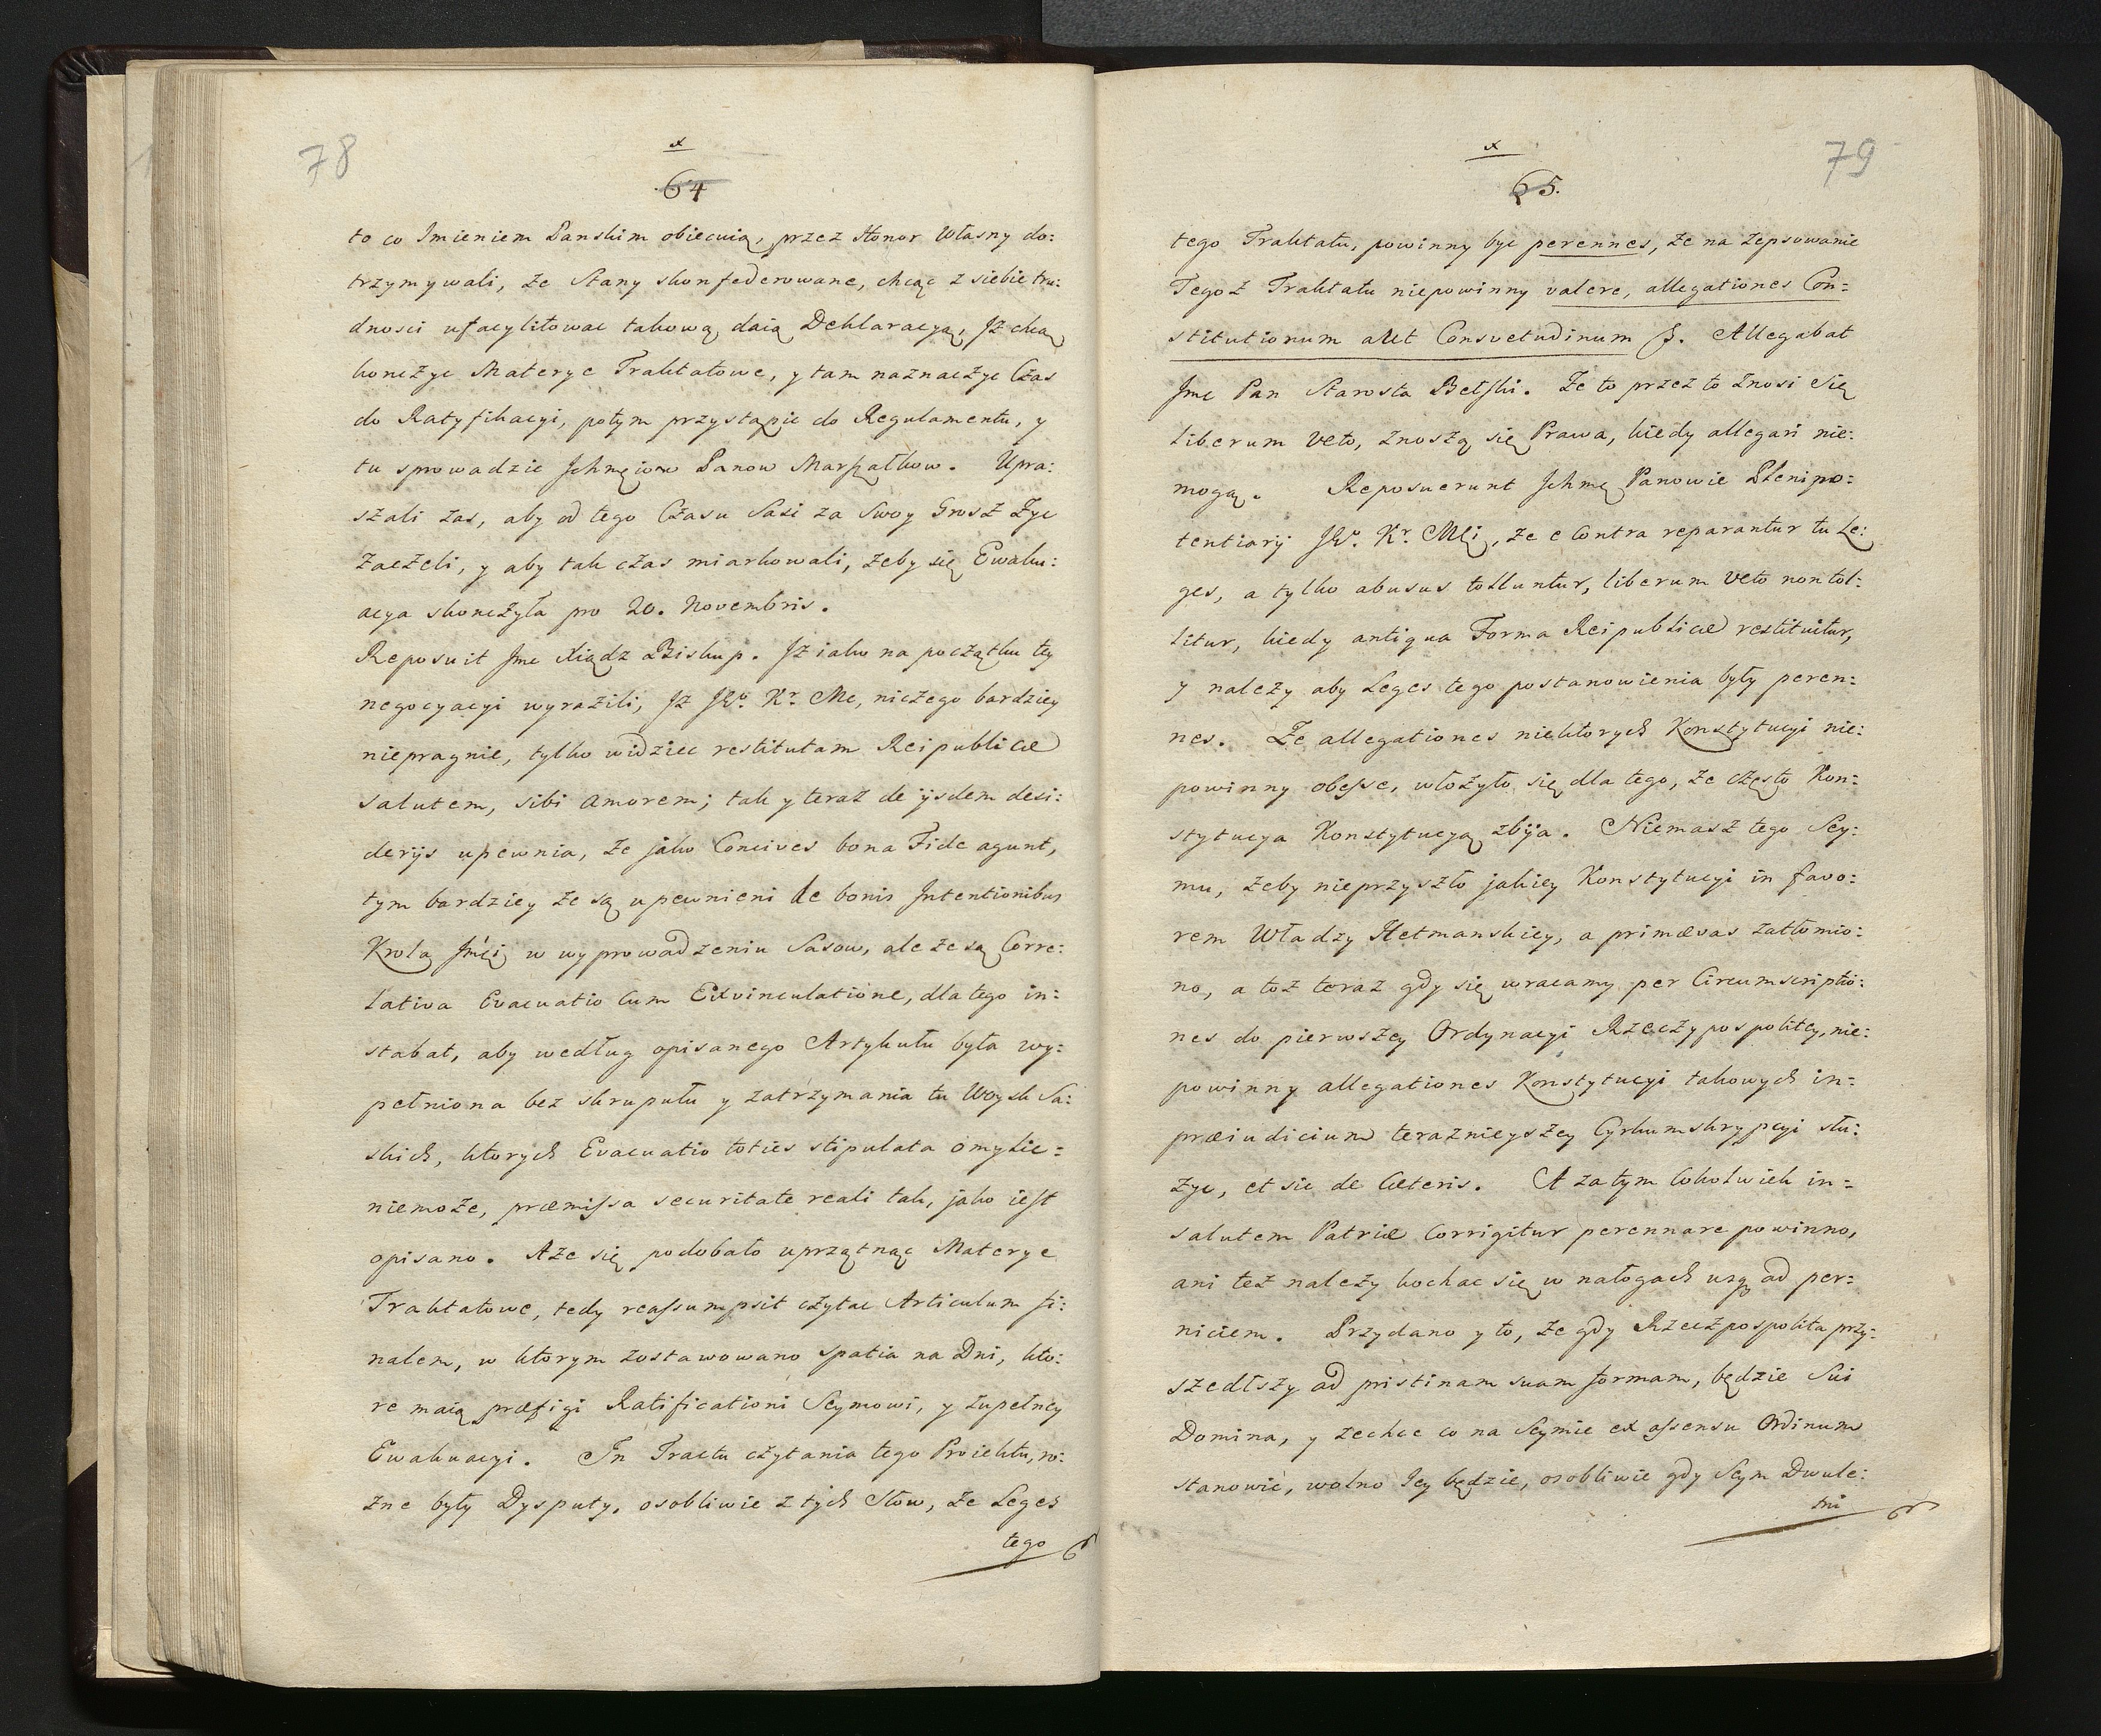 78
x
64
to co Jmieniem Panskim obiecuią, przez Honor Własny do:
trzymywali, że Stany skonfederowane, chcąc z siebie tru:
dnosci ufacylitowac takową daią Deklaracyą, Jż chcą
konczyc Materye Traktatowe, y tam naznaczyc Czas
do Ratyfikacyi, potym przystąpic do Regulamentu, y
tu sprowadzic Jchmęiow Panow Marszałkow. Upra:
szali zas, aby od tego Czasu Sasi za Swoy Grosz Życ
zaczeli, y aby tak czas miarkowali, żeby się Ewaku:
acya skonczyła pro 20. Novembris.
Reposuit Jmc Xiądz Biskup. Jż iako na początku tey
negocyacyi wyrazili, Jż JKo. Kr. Mc, niczego bardziey
niepragnie, tylko widziec restitutam Reipublicæ
salutem, sibi amorem; tak y teraz de ijsdem desi:
derijs upewnia, że jako Concives bona Fide agunt,
tym bardziey że są upewnieni de bonis Jntentionibus
Krola Jmći w wyprowadzeniu Sasow, ale że są Corre:
lativa Evacuatio cum Exvinculatione, dla tego in:
stabat, aby według opisanego Artykułu była wy:
pełniona bez skrupułu y zatrzymania tu Woysk Sa:
skich, ktorych Evacuatio toties stipulata omylic=
niemoże, præmissa securitate reali tak, jako iest
opisano. Aże się podobało uprzątnąc Materye
Traktatowe, tedy reassumpsit czytac Articulum fi:
nalem, w ktorym zostawowano spatia na Dni, kto:
re maią præfigi Ratificationi Seymowi, y zupełney
Ewakuacyi. Jn Tractu czytania tego Proiektu, ro:
zne były Dysputy, osobliwie z tych Słow, że Leges
tego
79
x
65.
tego Traktatu, powinny byc perennes, że na zepsowanie
Tegoż Traktatu niepowinny valere, allegationes Con=
stitutionum aut Consvetudinum §. Allegabat
Jmc Pan Starosta Bełski. Że to przez to znosi się
liberum veto, znoszą się Prawa, kiedy allegari nie:
mogą. Reposuerunt Jchmę Panowie Plenipo:
tentiarij JKo. Kr. Mći, że e contra reparantur tu Le:
ges, a tylko abusus tolluntur, liberum veto non tol:
litur, kiedy antiqua Forma Reipublicæ restituitur,
y należy aby Leges tego postanowienia były peren:
nes. Że allegationes niektorych Konstytucyi nie:
powinny obesse, włożyło się dla tego, że często Kon:
stytucya Konstytucyą zbija. Niemasz tego Sey:
mu, żeby nieprzyszło jakiey Konstytucyi in favo:
rem Władzy Hetmanskiey, a primævas zatłomio:
no, a toż teraz gdy się wracamy per Circumscriptio:
nes do pierwszey Ordynacyi Rzeczypospolitey, nie:
powinny allegationes Konstytucyi takowych in=
præiudicium teraznieyszey Cyrkumskrypcyi słu:
życ, et sic de cæteris. A zatym cokolwiek in=
salutem Patriæ corrigitur perennare powinno,
ani też należy kochac się w nałogach usq ad per:
niciem. Przydano y to, że gdy Rzeczpospolita przy:
szedłszy ad pristinam suam formam, będzie Sui
Domina, y zechce co na Seymie ex assensu Ordinum
stanowić, wolno Jey będzie, osobliwie gdy Seym Dwule:
tni